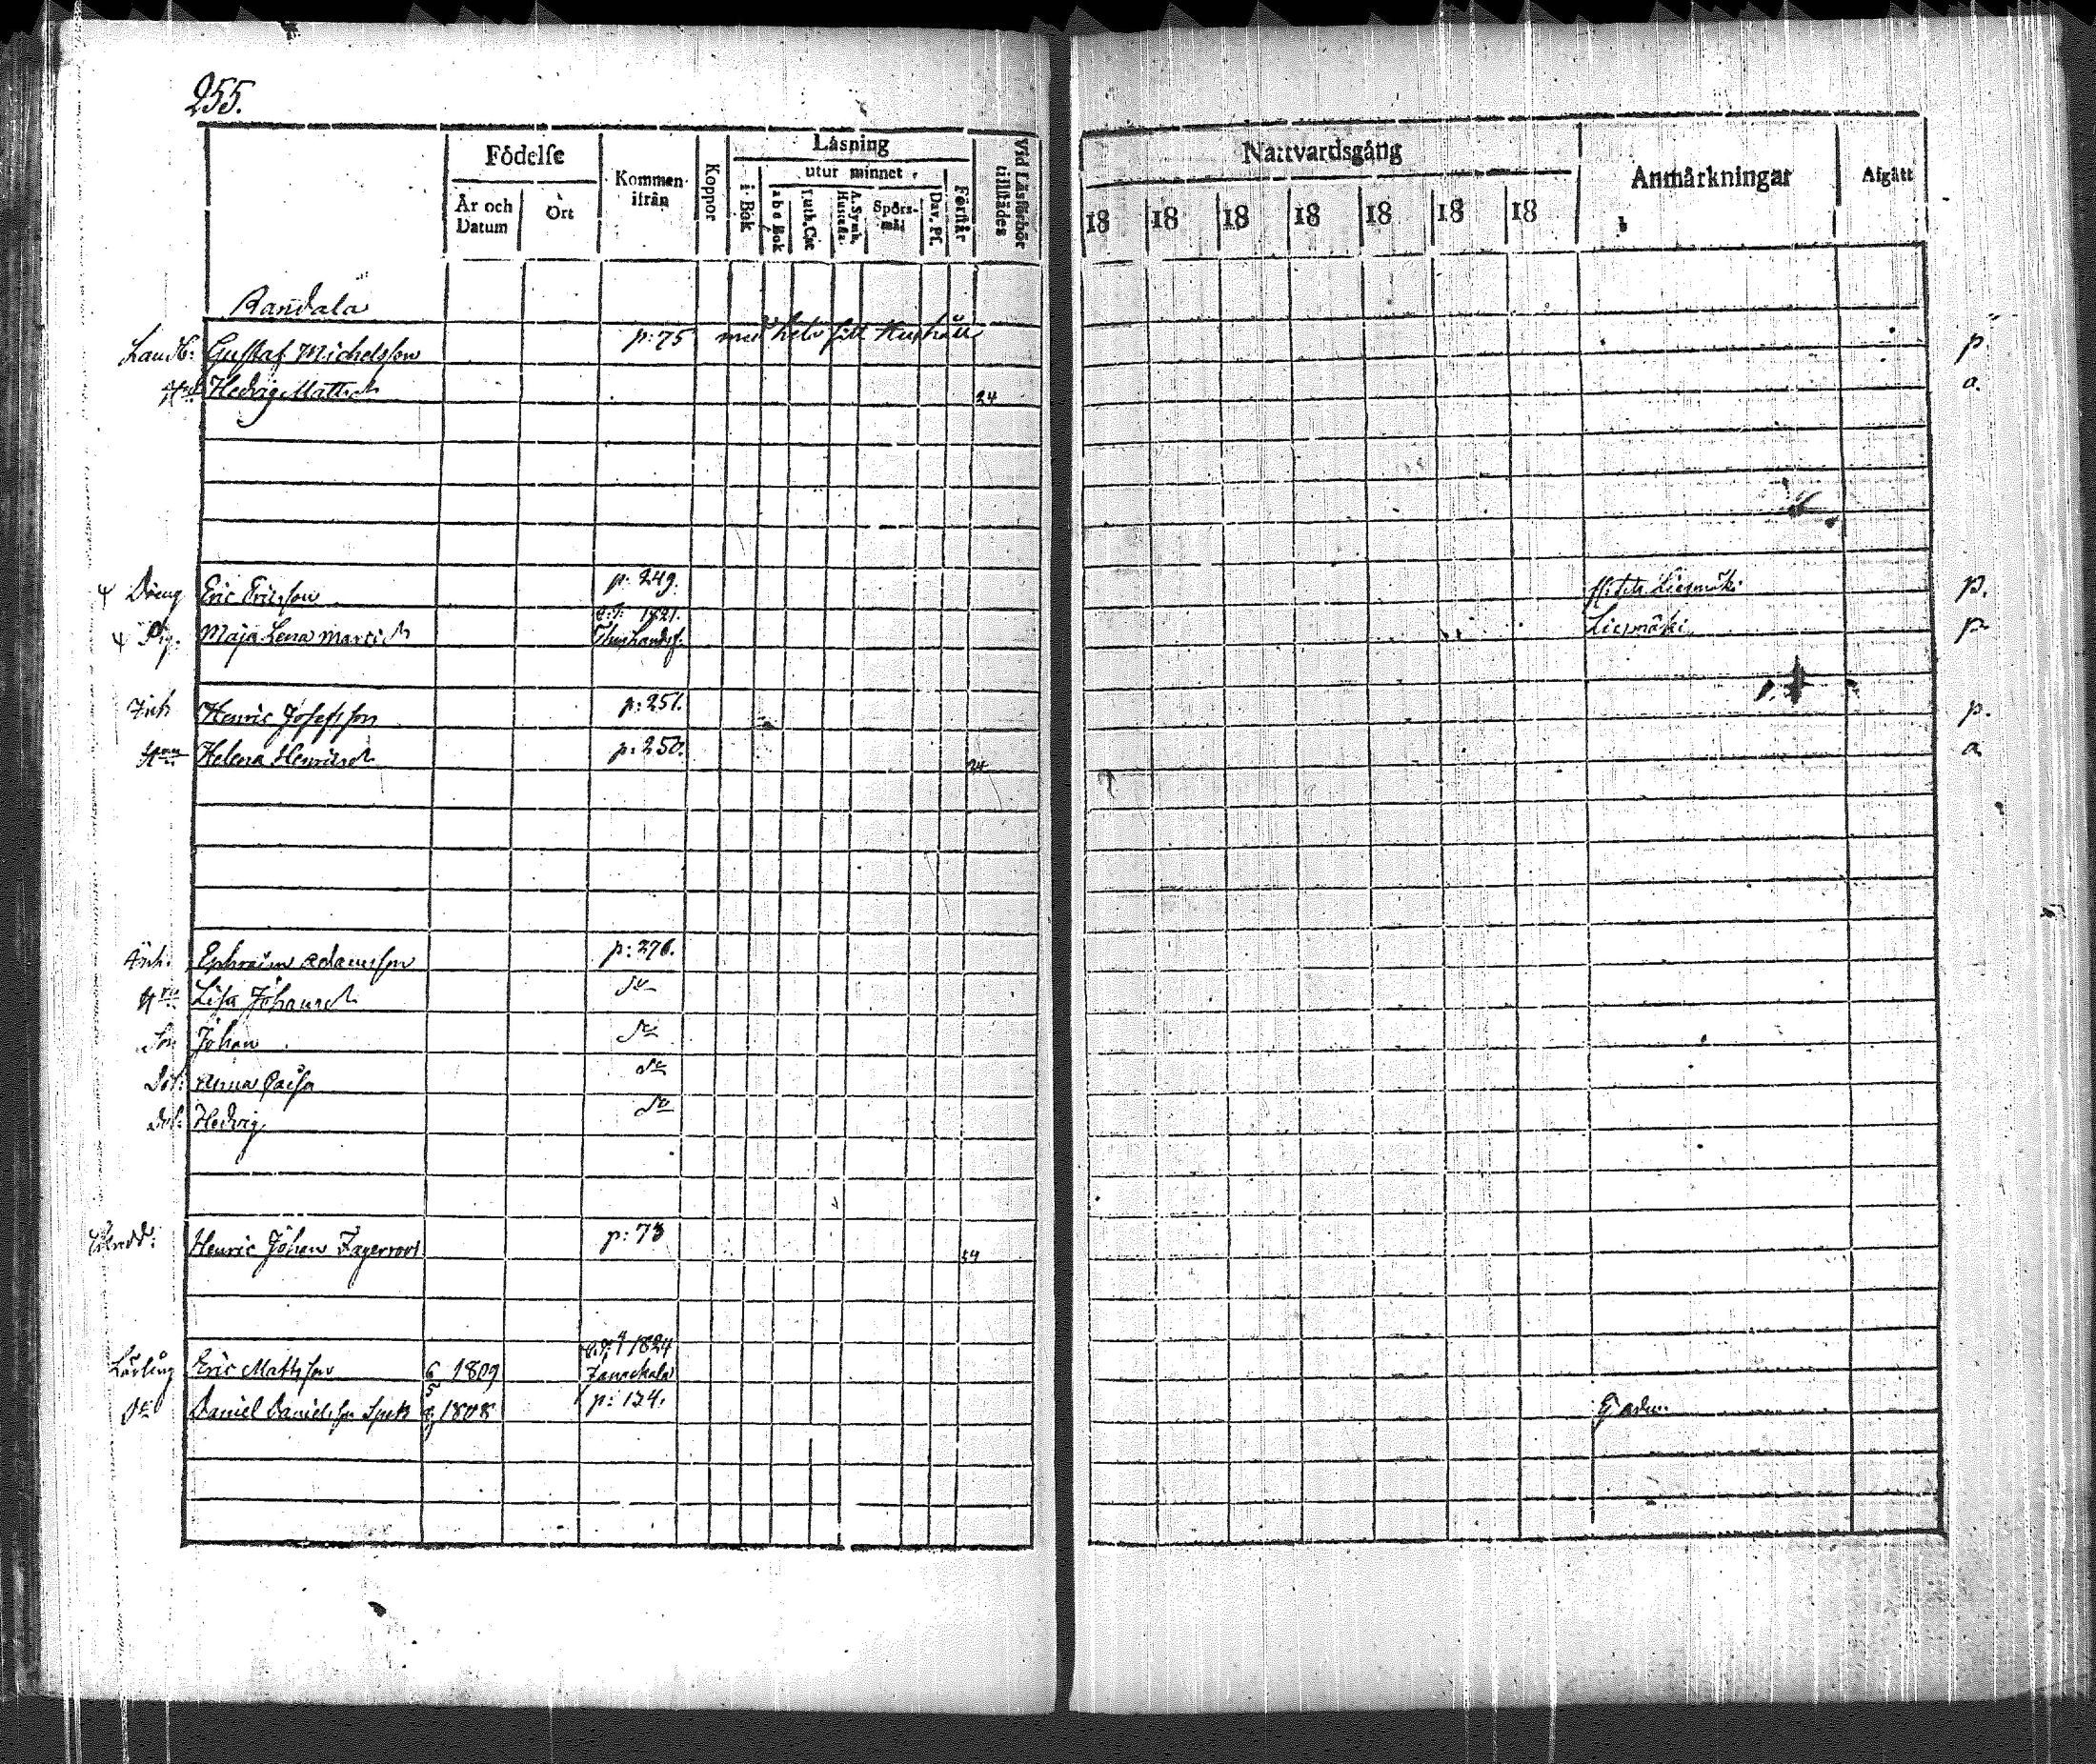 255.
Födelse
Läsning
Nattvardsgång
Kommen ifrån
Koppor
utur minnet
Förstår
Vid Läsförhör tillstädes
Anmärkningar
Afgått
År och Datum
Ort
i Bok
a b c Bok
Luth. Cat
A. Symb. Hustafla.
Spörsmål
Dav. Ps.
18 18 18 18 18 18 18
Randala
Landb: Gustaf Michelsson p: 75 med hela sitt Hushåll p
Hru Hedvig Mattsd 24 a.
Dräng Eric Ericsson p. 249. Liesmäki p.
Pig. Maja Lena Martisd 1821. Liesmäki p
Inh Henric Josefsson p: 251. p.
Hru Helena Henricsd p: 250. 24 a
Inh. Ephraim Adamsson p: 276.
Hru Lisa Johansd do
Son Johan do
Dot: Anna Caisa do
Dot: Hedvig do
Henric Johan Fagerroos p: 73 54
Lärling Eric Mattsson 6/5 1809 1824
do Daniel Danielsson 1808 p: 124.